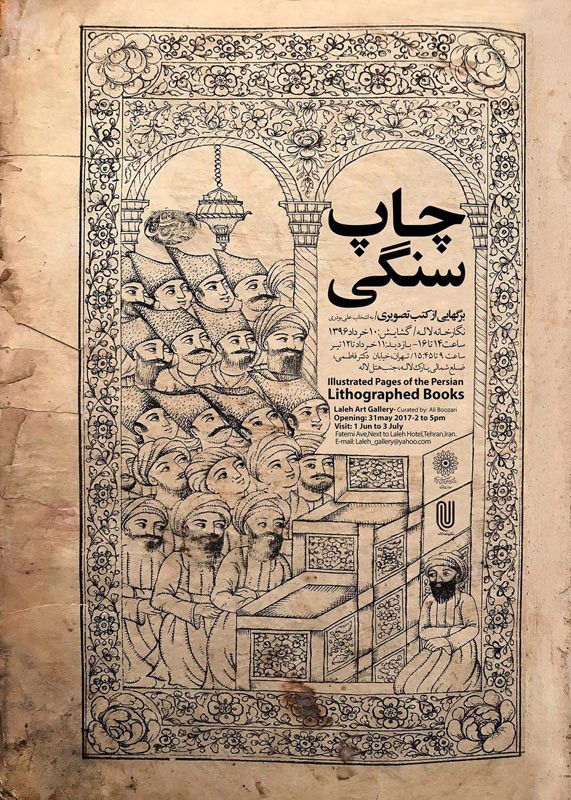 چاپ
سنگی
برگهایی از کتب تصویری/ به انتخاب علی بوذری
نگارخانه لاله/ گشایش: ۱۰ خرداد ۱۳۹۶
ساعت ۱۴ تا ۱۶- بازدید: ۱۱ خرداد تا ۱۲ تیر
ساعت ۹ تا ۱۵:۴۵/ تهران، خیابان دکتر فاطمی،
ضلع شمالی پارک لاله، جنب هتل لاله
Illustrated Pages of the Persian
Lithographed Books
Laleh Art Gallery- Curated by: Ali Boozari
Opening: 31may 2017-2 to 5pm
Visit: 1 Jun to 3 July
Fatemi Ave,Next to Laleh Hotel,Tehran,Iran.
E-mail: Laleh_gallery@yahoo.com